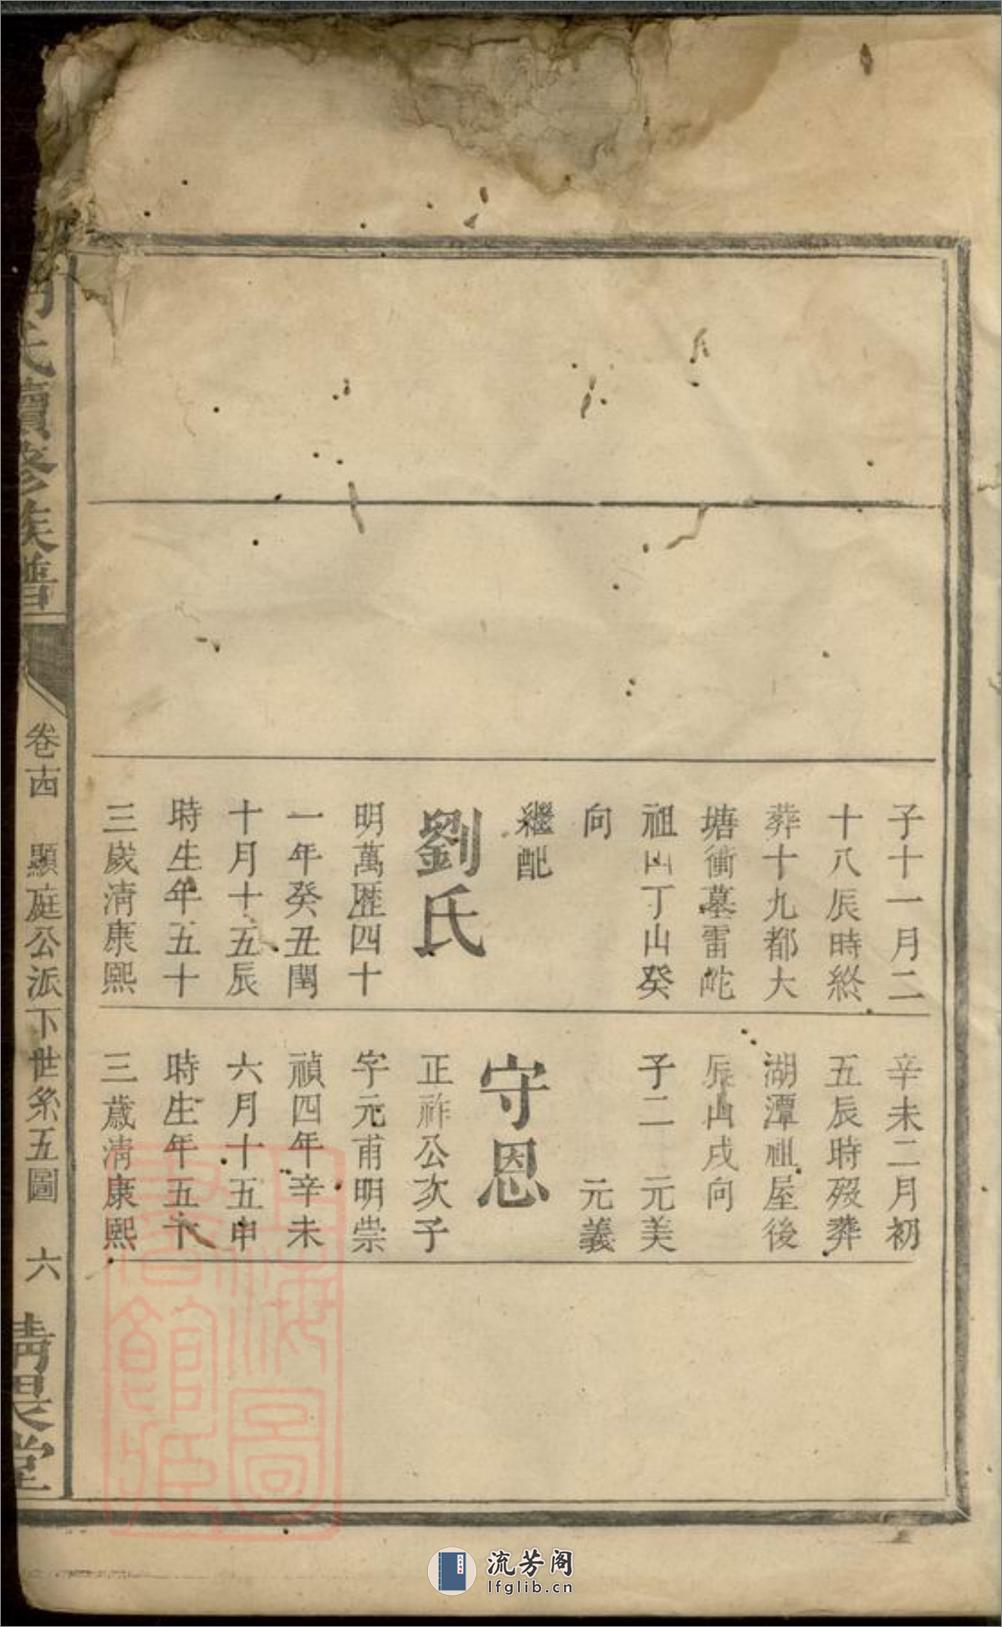 子十一月二
十八辰時終
葬十九都大
塘衝墓雷鉈
祖山丁山癸
向
繼配
劉氏
明萬歷四十
一年癸丑閏
十月十五辰
時生年五十
三歲清康熙
辛未二月初
五辰時歿葬
湖潭祖屋後
辰山戌向
子二 元美
元義
守恩
正祚公次子
字元甫明崇
禎四年辛未
六月十五申
時生年五十
三歲清康熙
氏續修族譜
卷十四 顯庭公派下世系五圖 六 清畏堂
上海圖書館藏
流芳阁
lfglib.cn